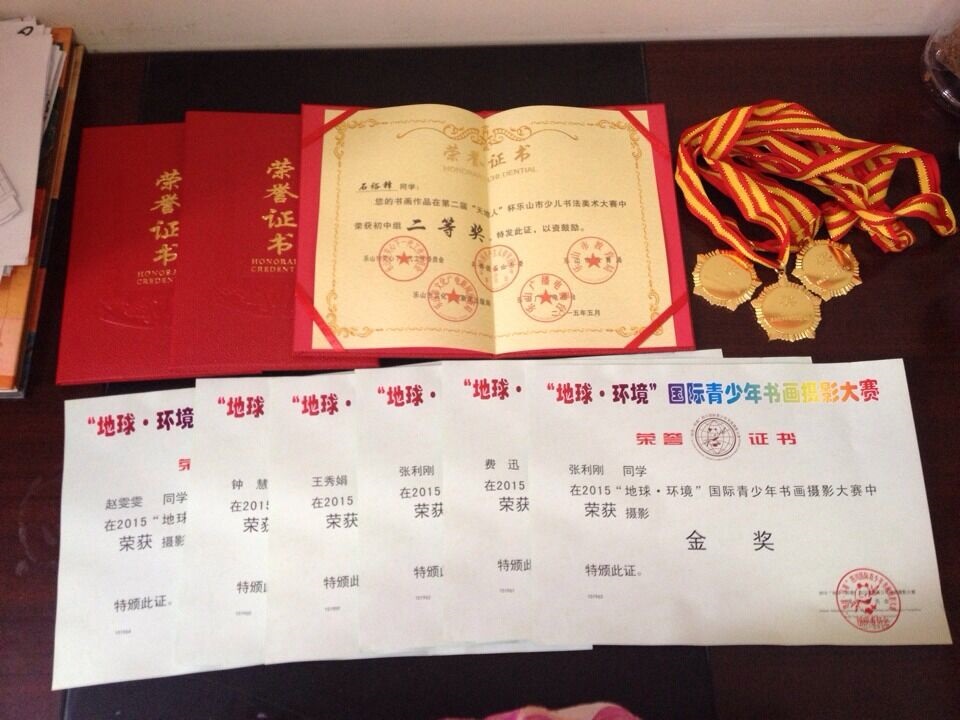 荣誉证书
HONORAR
CREDENT
荣誉证书
HONORAR
CREDENT
荣誉证书
同学：
您的书画作品在第二届“天地人”杯乐山市少儿书法美术大赛中
荣获初中组 二等奖，特发此证，以资鼓励。
二〇一五年五月
“地球·环境
荣
赵雯雯 同学
在2015“地球
荣获 摄影
特颁此证。
“地球
钟 慧
在2015
荣获
特颁此
“地球
王秀娟
在2015
荣获
特颁此
“地球
张利刚
在2015
荣获
特颁此
“地球
费 迅
在2015
荣获
特颁此
“地球·环境”国际青少年书画摄影大赛
荣誉证书
张利刚 同学
在2015“地球·环境”国际青少年书画摄影大赛中
荣获 摄影
金 奖
特颁此证。